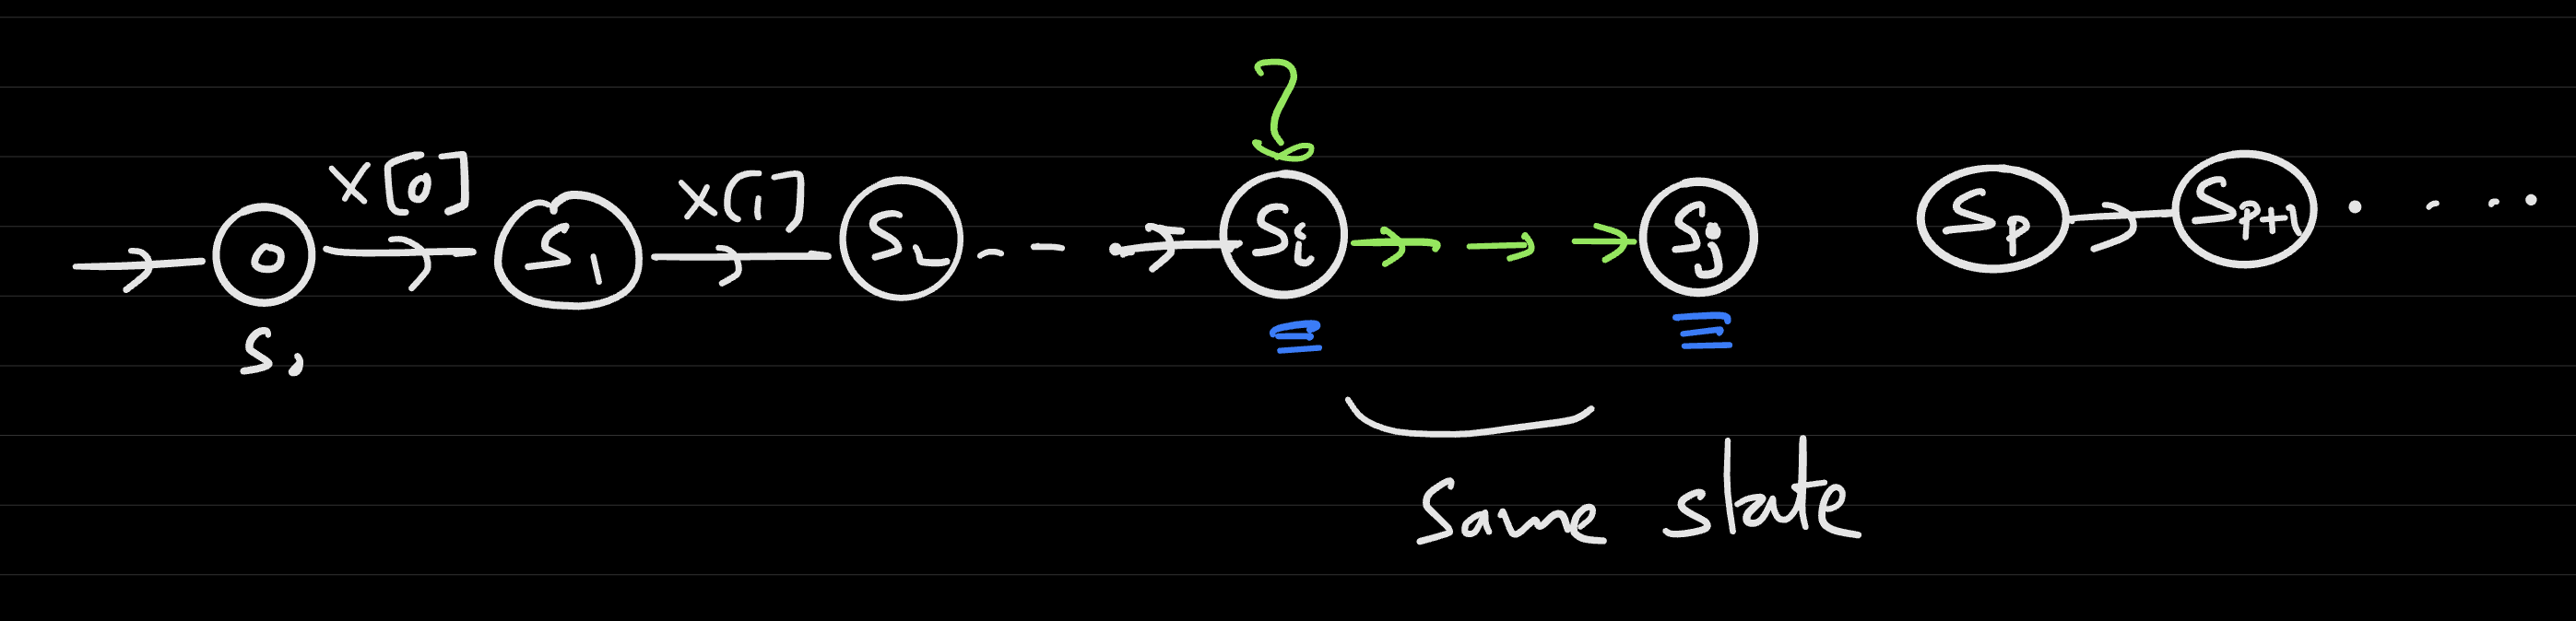 ?
x[0] x[1]
0 S1 S2 Si Sj Sp Sp+1
S
Same state